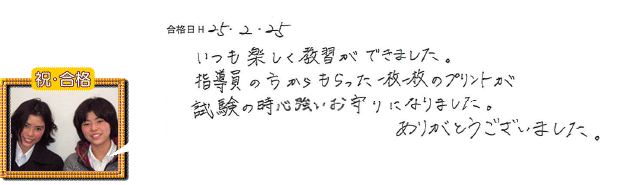 合格日 H 25.2.25
いつも楽しく教習ができました。
指導員の方からもらった一枚一枚のプリントが
試験の時心強いお守りになりました。
ありがとうございました。
祝・合格